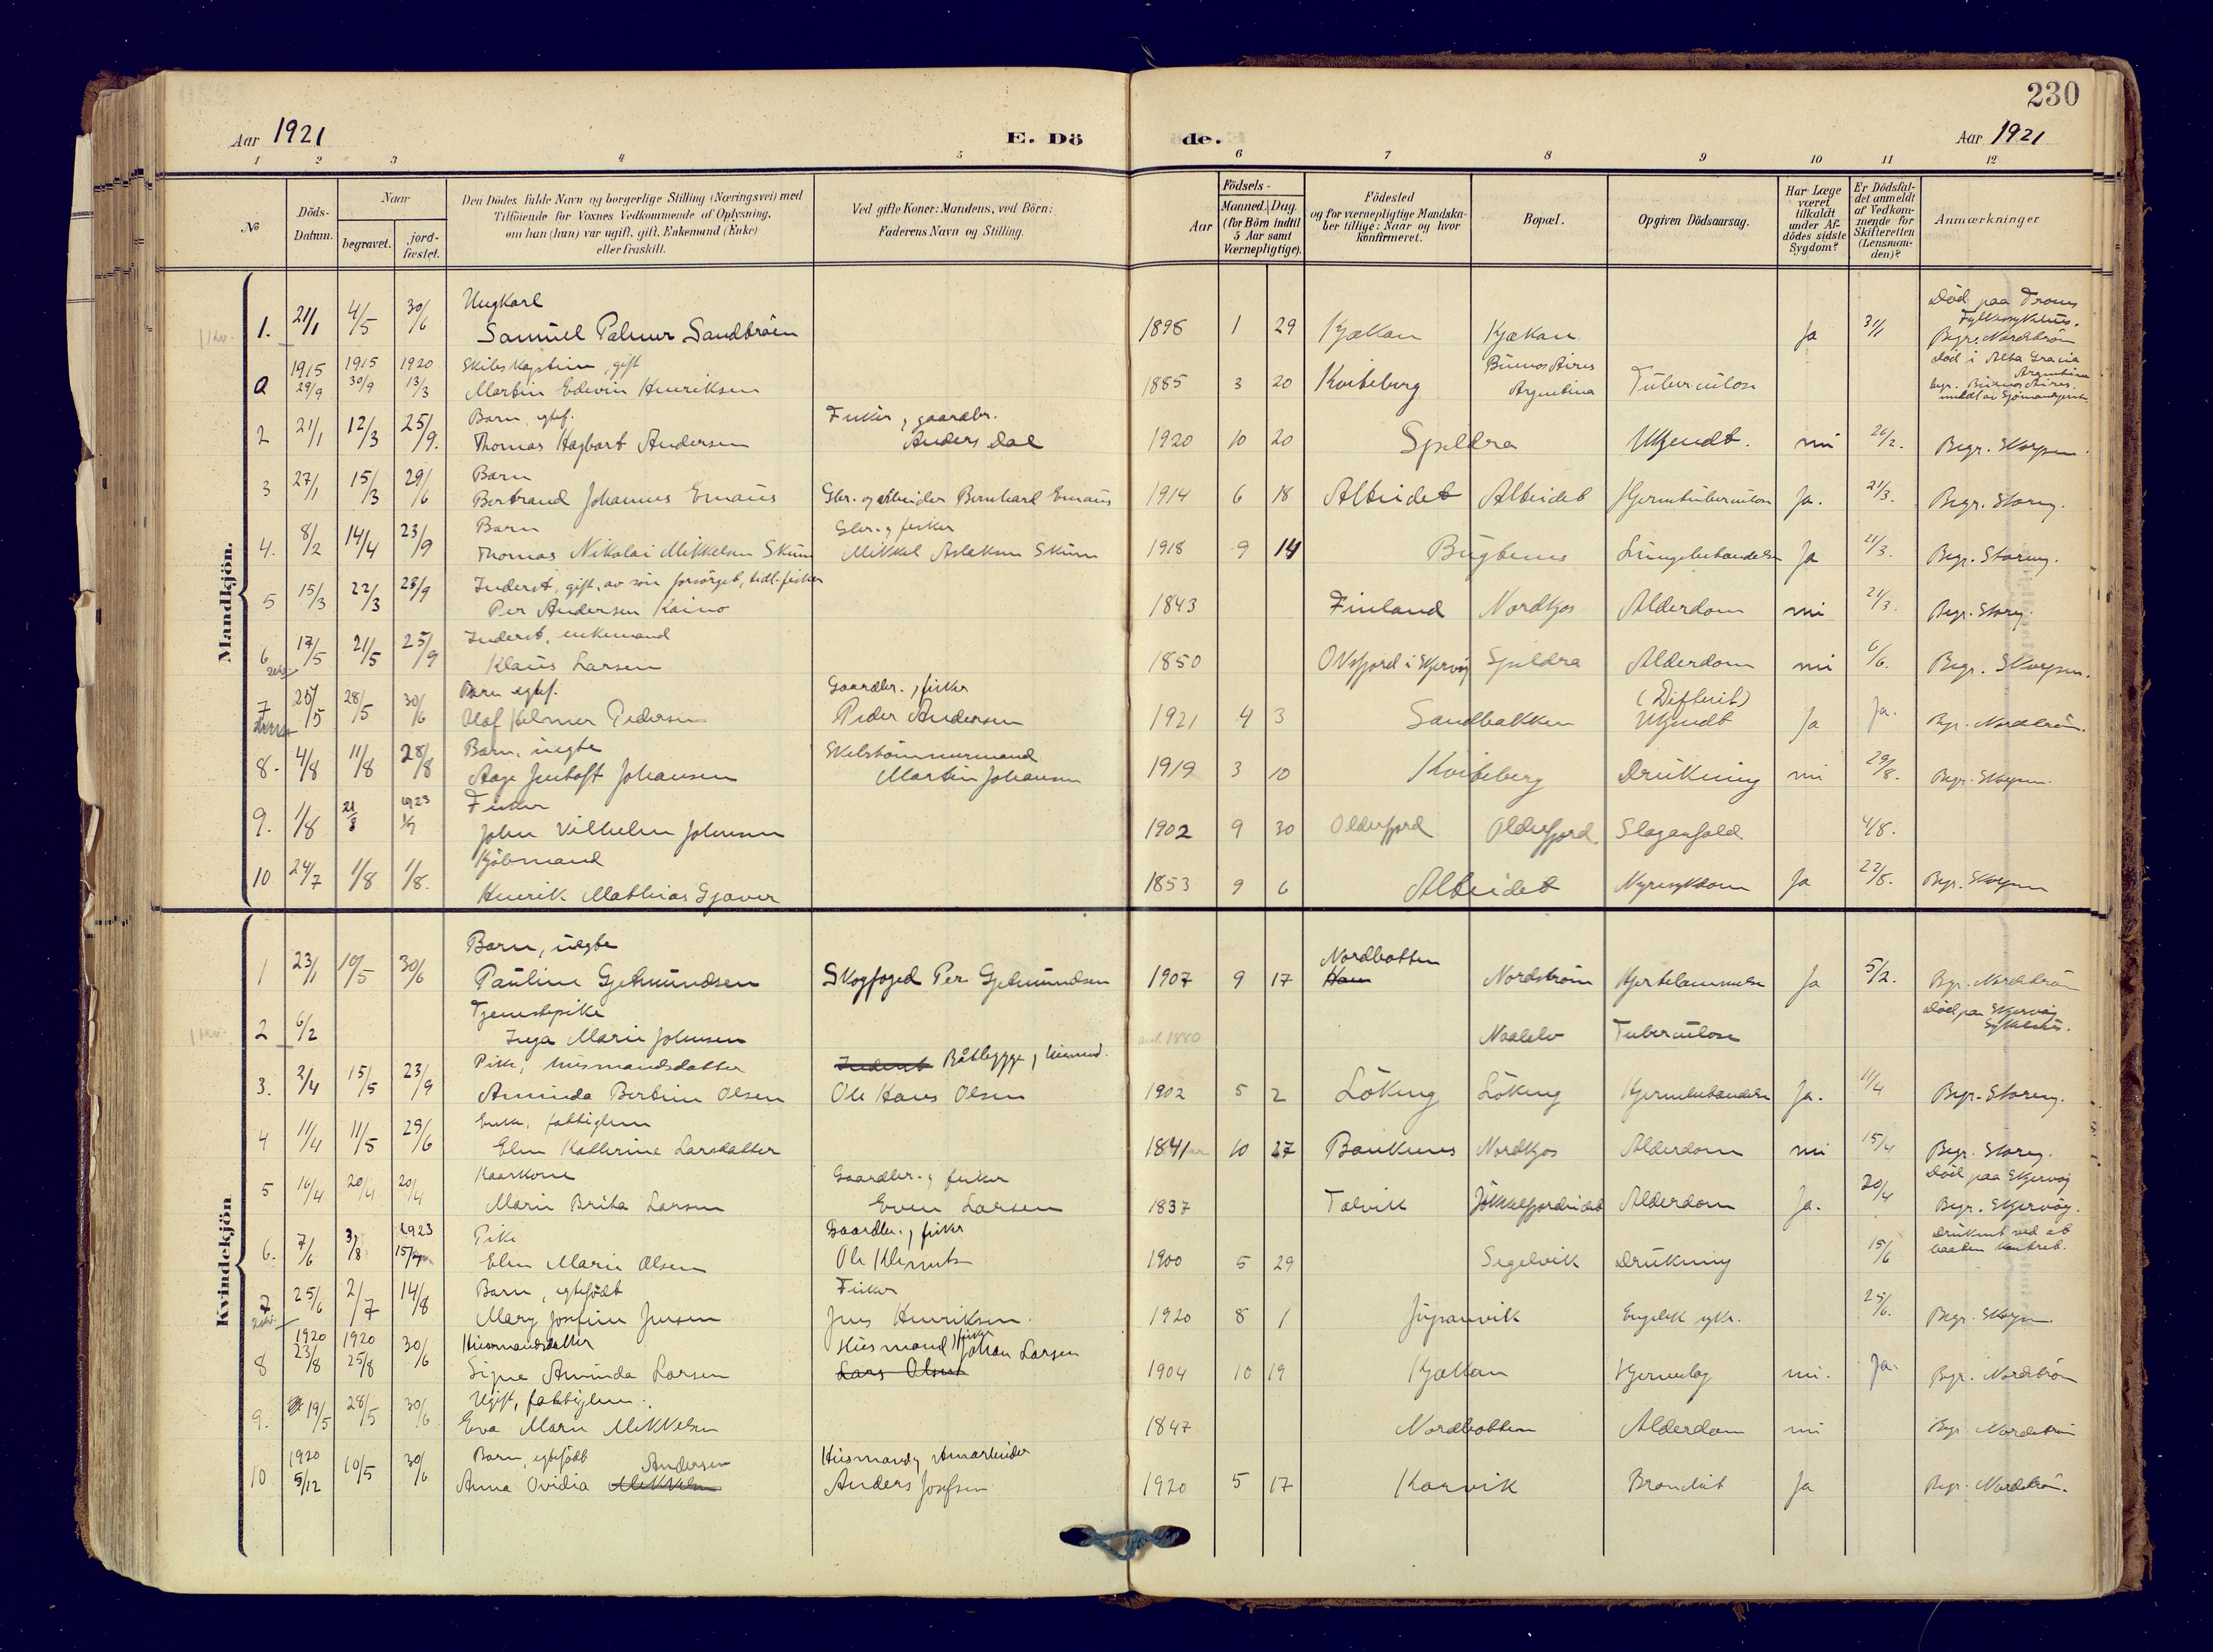 230
Aar 1921
E. Dö
de.
Aar 1921
1 2 3 4 5 6 7 8 9 10 11 12
№
Döds-
Datum.
Naar
begravet.
jord-
fæstet.
Den Dödes fulde Navn og borgerlige Stilling (Næringsvei) med
Tilföiende for Voxnes Vedkommende af Oplysning,
om han (hun) var ugift, gift, Enkemand (Enke)
eller fraskilt.
Ved gifte Koner: Mandens, ved Börn:
Faderens Navn og Stilling.
Födsels-
Aar
Maaned. Dag.
(for Börn indtil
5 Aar samt
Værnepligtige).
Födested
og for værnepligtige Mandska-
ber tillige: Naar og hvor
konfirmeret.
Bopæl.
Opgiven Dödsaarsag.
Har Læge
været
tilkaldt
under Af-
dödes sidste
Sygdom?
Er Dödsfal-
det anmeldt
af Vedkom-
mende for
Skifteretten
(Lensman-
den)?
Anmærkninger
Mandkjön.
Ungkarl
1. 21/1 4/5 30/6 Samuel Palmer Sandbråen 1898 1 29 Kjækan Kjækan Ja 31/1
Död paa Troms
Fylkessykehus.
Begr. Nordström
1915 1915 1920 Skibskaptein, gift
a 29/9 30/9 13/3 Martin Edevin Henriksen 1885 3 20 Kviteberg Buenos Aires
Argentina Tuberculose
Död i Alta Gracia
Argentina
begr. Buenos Aires.
Barn, egtef. Fisker, gaardbr.
2 21/1 12/3 25/9. Thomas Hagbart Andersen Anders Dal 1920 10 20 Spildra Ukjendt. nei 26/2. Begr. Skorpen.
Barn
3 27/1 15/3 29/6 Bertrand Johannes Emaus Gbr. og arbeider Bernhard Emaus 1914 6 18 Alteidet Alteidet Hjernetuberculose Ja. 21/3. Begr. Storeng.
Barn Gbr. og fisker
4. 8/2 14/4 23/9 Thomas Nikolai Mikkelsen Skum Mikkel Aslaksen Skum 1918 9 14 Bugtenes Lungebetændelse Ja 21/3. Begr. Storeng.
Inderst, gift, av sön forsörget, tidl. fisker
5 15/3 22/3 23/9 Per Andersen Kaino 1843 Finland Nordkjos Alderdom nei 21/3. Begr. Storeng.
Inderst, enkemand
6 17/5 21/5 25/9 Klaus Larsen 1850 Oksfjord i Skjervöy Spildra Alderdom nei 6/6. Begr. Skorpen.
Barn egtef. Gaardbr., fisker
7 20/5 28/5 30/6 Olaf Helmer Pedersen Peder Andersen 1921 4 3 Sandbakken (Difterit)
Ukjendt Ja Ja. Begr. Nordström.
Barn, uegte Skibstömmermand
8. 4/8 11/8 28/8 Aage Jentoft Johansen Martin Johansen 1919 3 10 Kviteberg Drukning nei 29/8. Begr. Skorpen.
1923 Fisker
9. 1/8 21/8 1/9 John Vilhelm Johnsen 1902 9 30 Olderfjord Olderfjord. Slaganfald 4/8.
Kjöbmand
10 24/7 1/8 1/8. Henrik Mathias Gjæver 1853 9 6 Alteidet Nyresykdom Ja 22/8. Begr. Skorpen
Kvindekjön
Barn, uegte
1 23/1 10/5 30/6 Pauline Gjetmundsen Skogfoged Per Gjetmundsen 1907 9 17 Nordbotten
Ham Nordström Hjertelammelse Ja 5/2. Begr. Nordström
Tjenestepike
2 6/2 Inga Marie Johnsen ant. 1880 Tuberculose
Död paa Skjervöy
Sykehus.
Pike, husmandsdatter Inderst Båtbygger, husmand.
3. 2/4 15/5 23/9 Aminda Bertine Olsen Ole Hans Olsen 1902 5 2 Lökeng Lökeng Hjernebetændelse Ja. 11/4 Begr. Storeng.
Enke, fattiglem
4 11/4 11/5 29/6 Elen Katherine Larsdatter 1841 10 27 Bankenes Nordkjos Alderdom nei 15/4 Begr. Storeng.
Kaarkone Gaardbr. og fisker
5 16/4 20/4 20/4 Marie Brita Larsen Even Larsen 1837 Talvik Jökkelfjordeidet Alderdom Ja. 20/4
Död paa Skjervöy
Begr. Skjervöy.
1923 Pike Gaardbr., fisker
6. 7/6 3/8 15/7 Elen Marie Olsen Ole Klemetsen 1900 5 29 Segelvik Drukning 15/6
Druknet ved at
baaden kantret.
Barn, egtefödt Fisker
7 25/6 2/7 14/8 Mary Josefine Jensen Jens Henriksen. 1920 8 1 Jupanvik Engelsk syke. 25/6. Begr. Skorpen.
1920 1920 Husmandsdatter Husmand, fisker Johan Larsen
8 23/8 25/8 30/6 Signe Aminda Larsen Lars Olsen 1904 10 19 Kjækan Hjerneslag nei. Ja. Begr. Nordström
Ugift, fattiglem.
9. 19/5 28/5 30/6 Eva Marie Mikkelsen 1847 Nordbotten Alderdom nei Begr. Nordström
1920 Barn, egtefödt Andersen Husmand, Amarbeider
10 5/12 10/5 30/6 Anna Ovidia Mikkelsen Anders Josefsen 1920 5 17 Karvik Bronchit Ja Begr. Nordström.